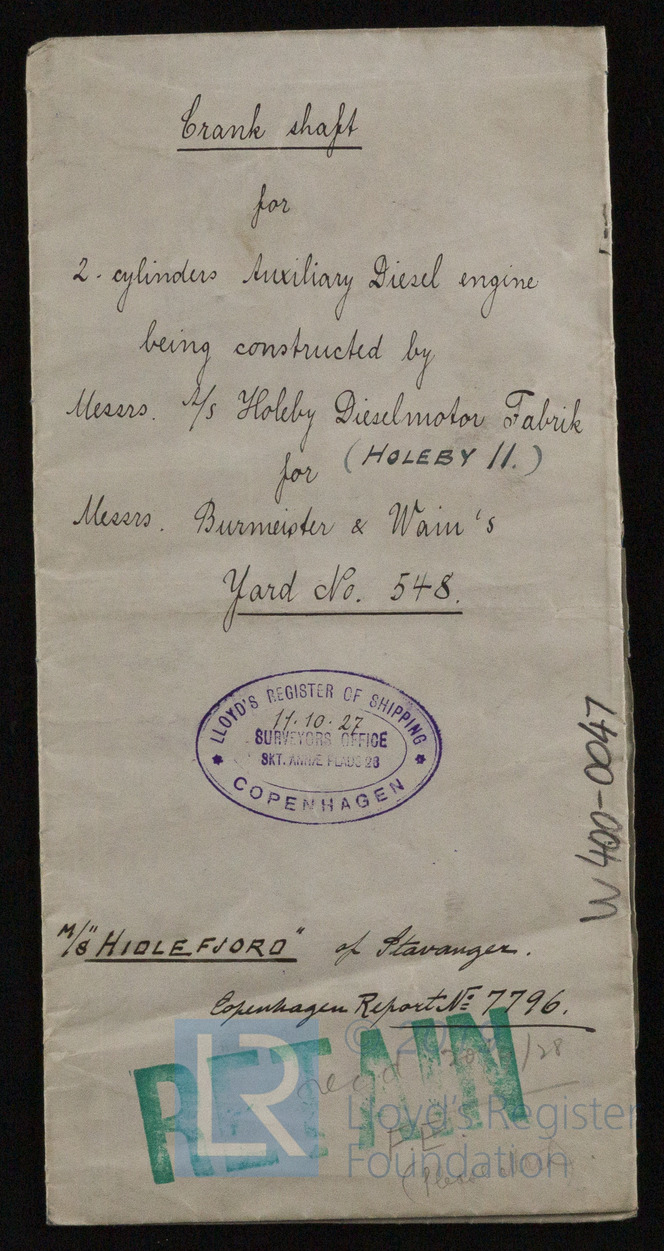 Crank shaft
for
2- cylinders Auxiliary Diesel engine
being constructed by
Messrs. A/s Holeby Dieselmotor Fabrik
(HOLEBY 11.)
for
Messrs. Burmeister & Wain's
Yard No. 548.
LLOYD'S REGISTER OF SHIPPING
11.10.27
SURVEYORS OFFICE
SKT. ANNÆ PLADS 28
COPENHAGEN
W400-0047
M/S "HIDLEFJORD" of Stavanger.
Copenhagen Report No 7796.
RETAIN
LR
©
Lloyd's Register
Foundation